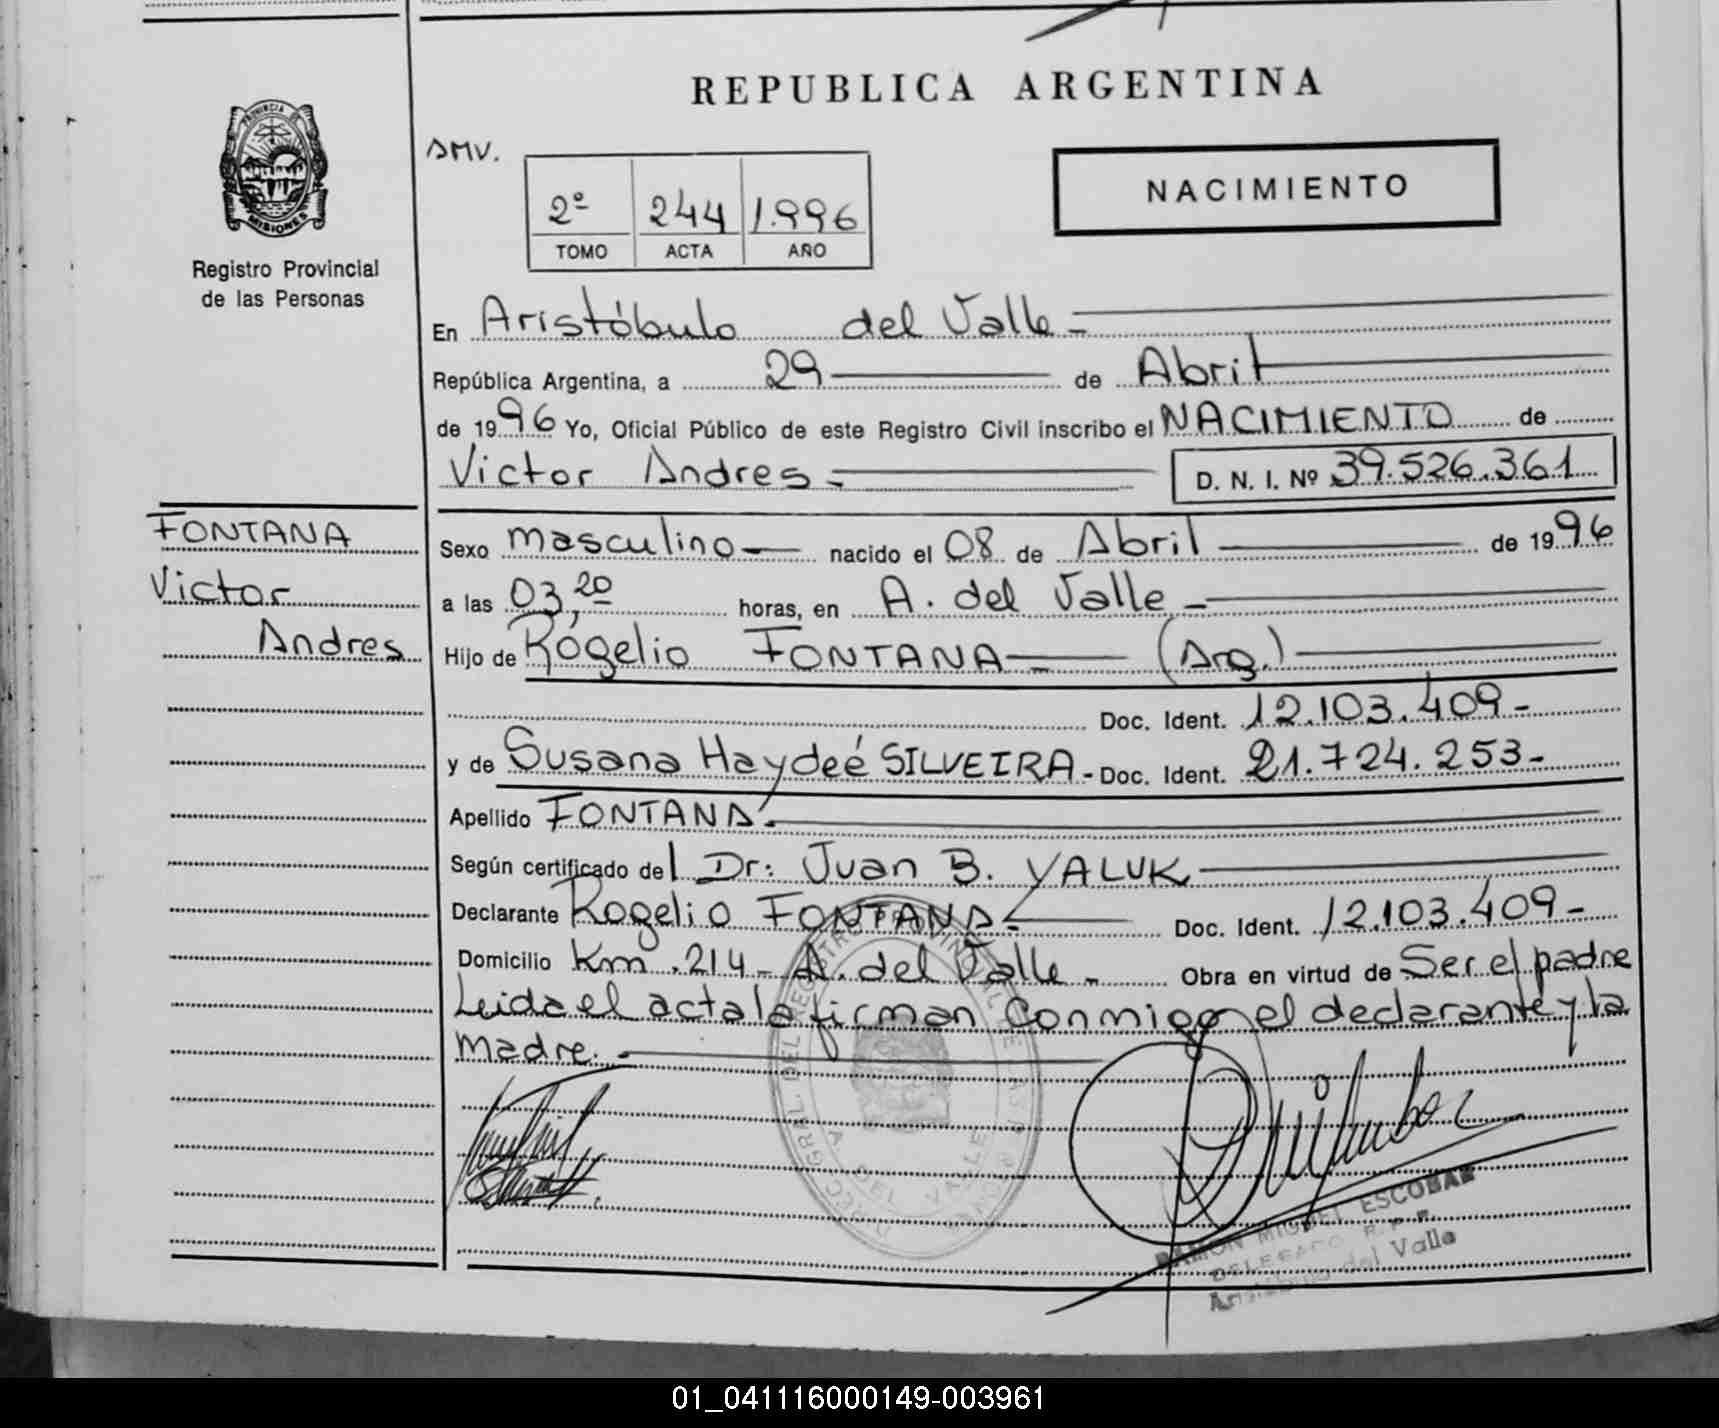 REPUBLICA ARGENTINA
PROVINCIA DE
MISIONES
Registro Provincial
de las Personas
SMV.
2º 244 1.996
TOMO ACTA AÑO
NACIMIENTO
En Aristóbulo del Valle -
República Argentina, a 29 de Abril
de 1996 Yo, Oficial Público de este Registro Civil inscribo el NACIMIENTO de
Victor Andres - D. N. I. Nº 39.526.361
FONTANA
Victor
Andres
Sexo masculino nacido el 08 de Abril de 1996
a las 03,20 horas, en A. del Valle -
Hijo de Rogelio FONTANA (Arg.)
Doc. Ident. 12.103.409-
y de Susana Haydeé SILVEIRA - Doc. Ident. 21.724.253-
Apellido FONTANA.
Según certificado del Dr: Juan B. YALUK
Declarante Rogelio FONTANA- Doc. Ident. 12.103.409-
Domicilio Km .214- A. del Valle - Obra en virtud de Ser el padre
Leida el acta la firman conmigo el declarante y la
madre. -
A. DEL VALLE
RAMON MIGUEL ESCOBAR
DELEGADO R.P.P.
Aristóbulo del Valle
01_041116000149-003961